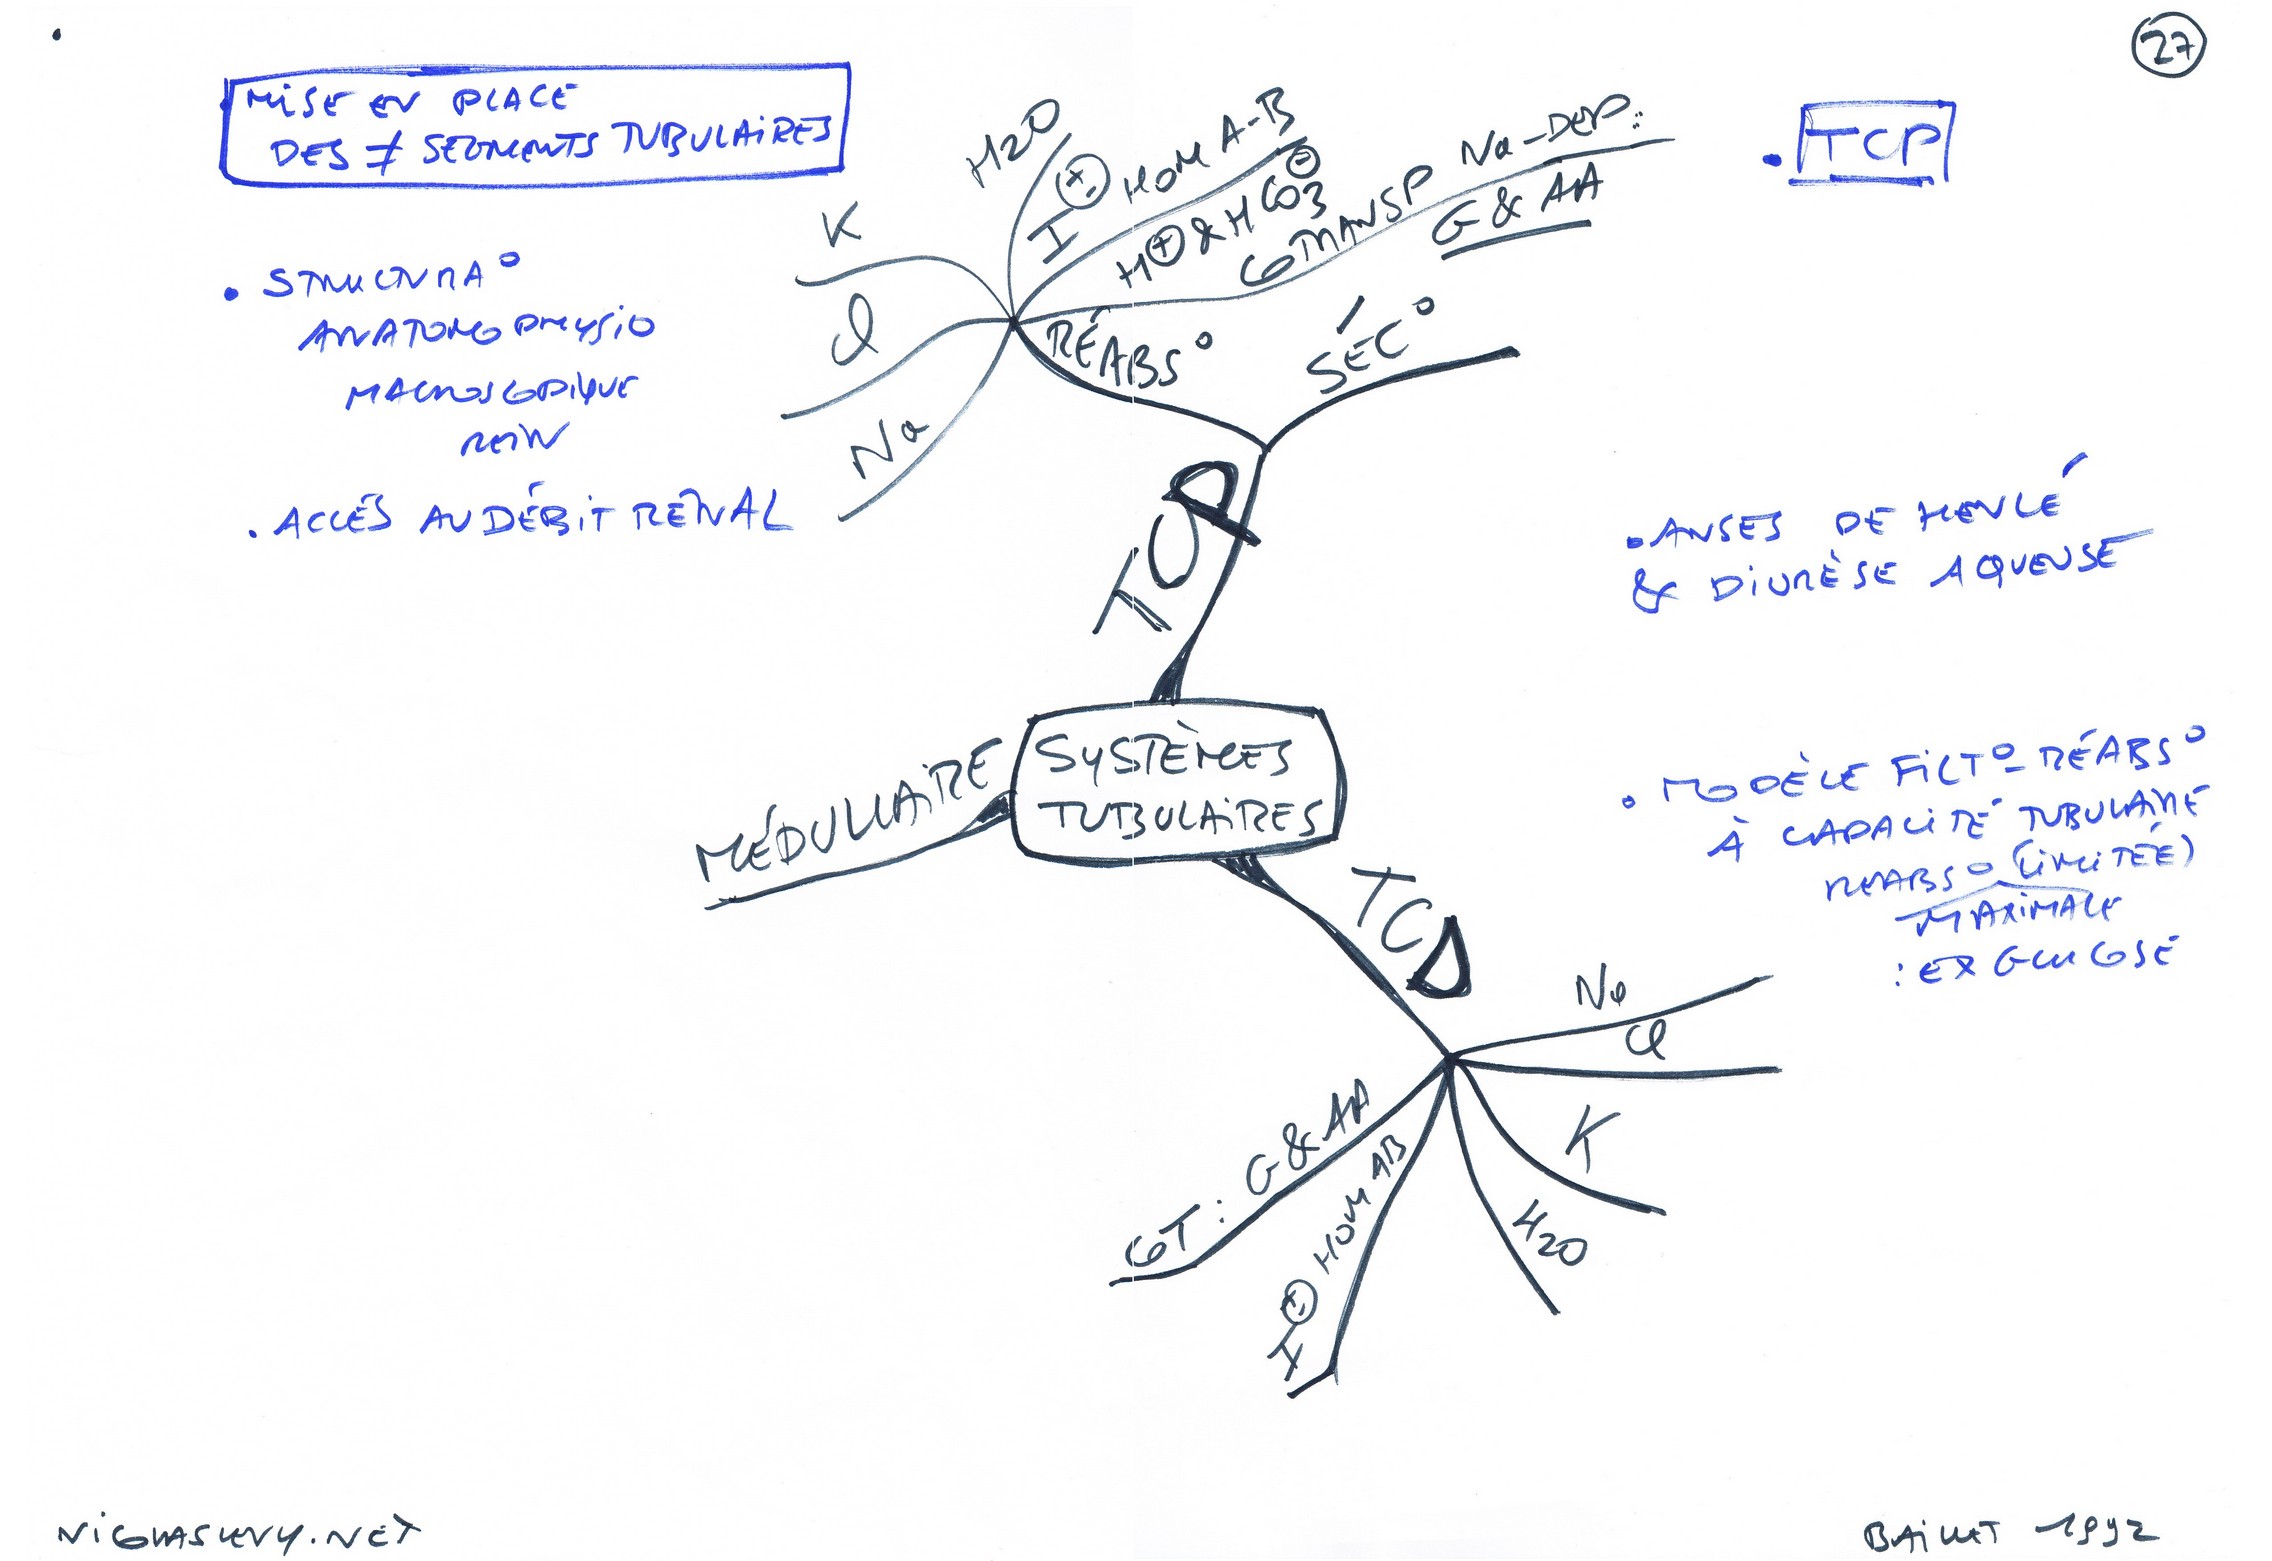 27
MISE EN PLACE
DES ≠ SEGMENTS TUBULAIRES
• STRUCTURA°
ANATOMO PHYSIO
MACROSCOPIQUE
REIN
• ACCÈS AU DÉBIT RÉNAL
• TCP
• ANSES DE HENLÉ
& DIURÈSE AQUEUSE
• MODÈLE FILT°-RÉABS°
À CAPACITÉ TUBULAIRE
RÉABS° (LIMITÉE)
MAXIMALE
: EX GLUCOSE
SYSTÈMES
TUBULAIRES
TCP
RÉABS°
SÉC°
Na
Cl
K
H2O
I ± HOM A-B
H⊕ & HCO3⊖
COTRANSP Na-DEP:
G & AA
MÉDULLAIRE
TCD
Na
Cl
K
H2O
I ± HOM AB
COT: G & AA
NICOLASLEVY.NET
BAILLET 1992